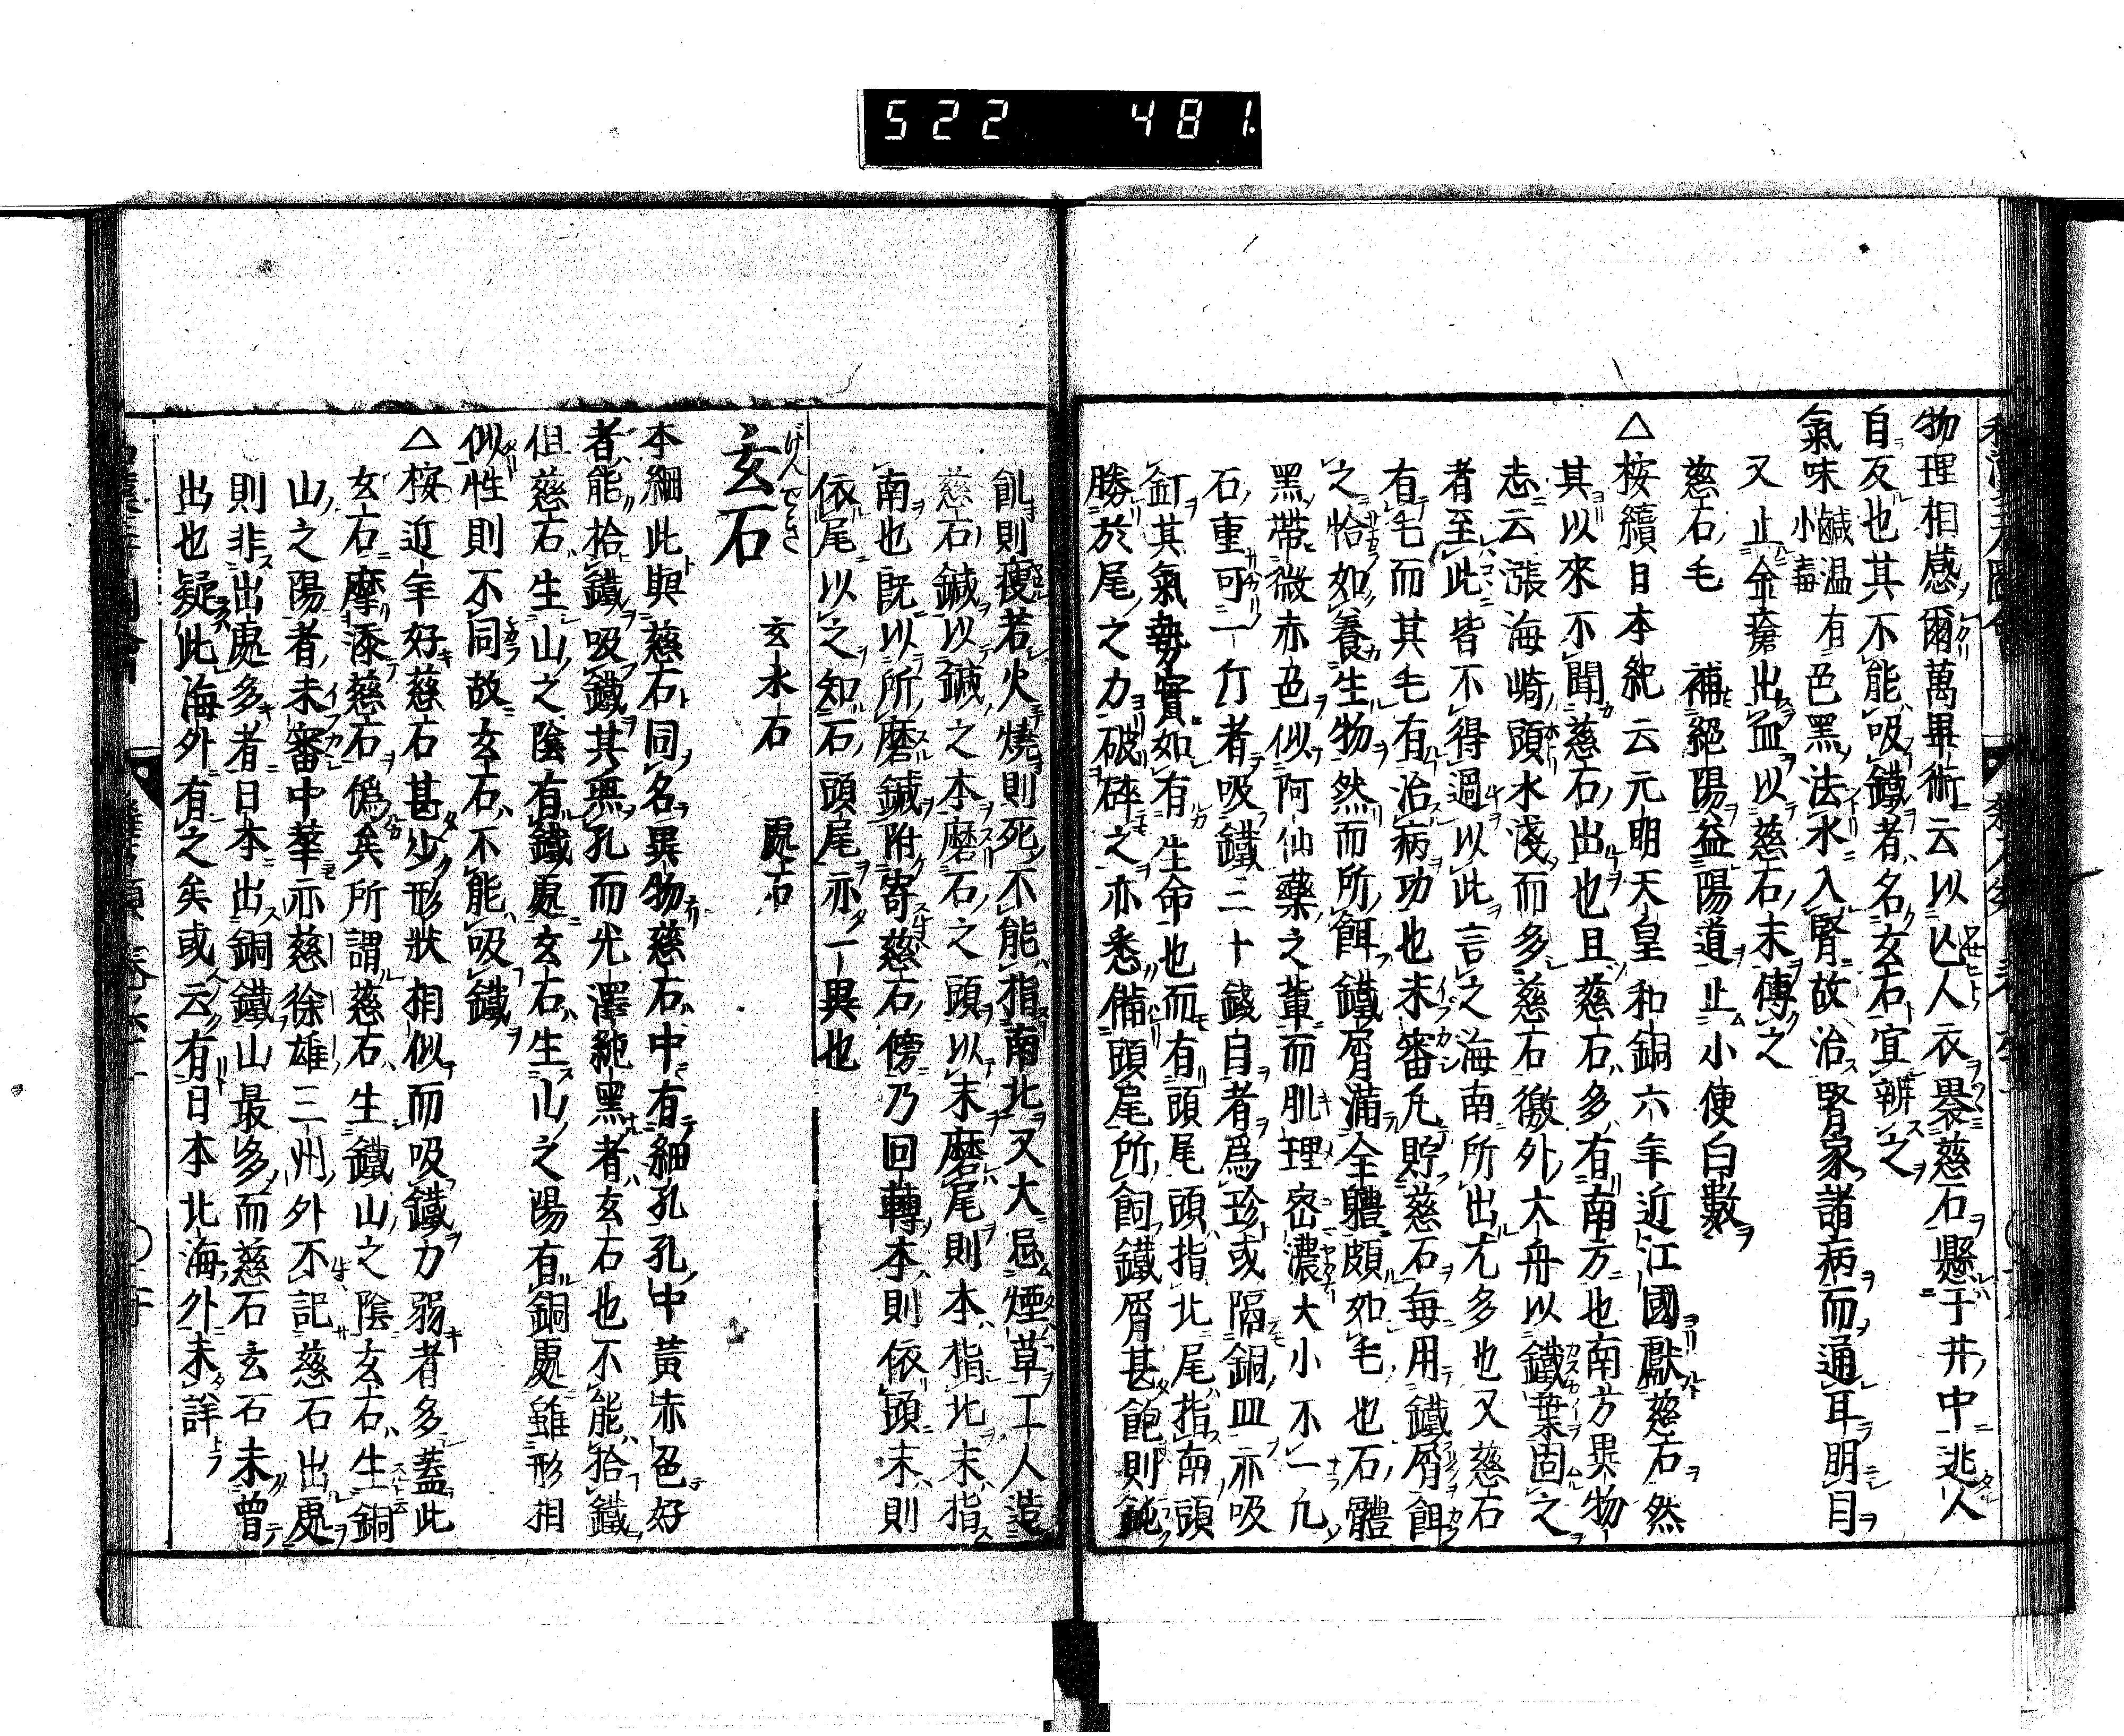 522 481.
物理相感爾萬畢術云以亾人衣褁慈石懸于井中逃人
自反也其不能吸鐵者名玄石宜辨之
氣味鹹温有小毒色黑法水入腎故治腎家諸病而通耳明目
又止金瘡出血以慈石末傅之
慈石毛　補絕陽益陽道止小便白數
△按續日本紀云元明天皇和銅六年近江國獻慈石然
其以來不聞慈石出也且慈石多有南方也南方異物
志云漲海崎頭水淺而多慈石徼外大舟以鐵葉固之
者至此皆不得過以此言之海南所出尤多也又慈石
有毛而其毛有治病功也未審凡貯慈石每用鐵屑餌
之恰如養生物然而所餌鐵屑滿全體頗如毛也石體
黑帶微赤色似阿仙藥之軰而肌理宻濃大小不一凢
石重可一二行者吸鐵二十錢自者爲珍或隔銅皿亦吸
釭其氣勢實如有生命也而有頭尾頭指北尾指南頭
勝於尾之力破碎之亦悉備頭尾所飼鐵屑甚飽則鈍
飢則瘦若火燒則死不能指南北又大忌煙草工人造
慈石鍼以鍼之本磨石之頭以末磨尾則本指北末指
南也既以所磨鍼附寄慈石傍乃回轉本則依頭末則
依尾以之知石頭尾亦一異也
玄石
げんせき
玄水石　處石
本綱此與慈石同名異物慈石中有細孔孔中黃赤色好
者能拾鐵吸鐵其無孔而光澤純黑者玄石也不能拾鐵
但慈石生山之陰有鐵處玄石生山之陽有銅處雖形相
似性則不同故玄石不能吸鐵
△按近年好慈石甚少形狀相似而吸鐵力弱者多蓋此
玄石摩漆慈石僞矣所謂慈石生鐵山之陰玄石生銅
山之陽者未審中華亦慈徐雄三州外不記慈石出處
則非出處多者日本出銅鐵山最多而慈石玄石未曾
出也疑此海外有之矣或云有日本北海外未詳